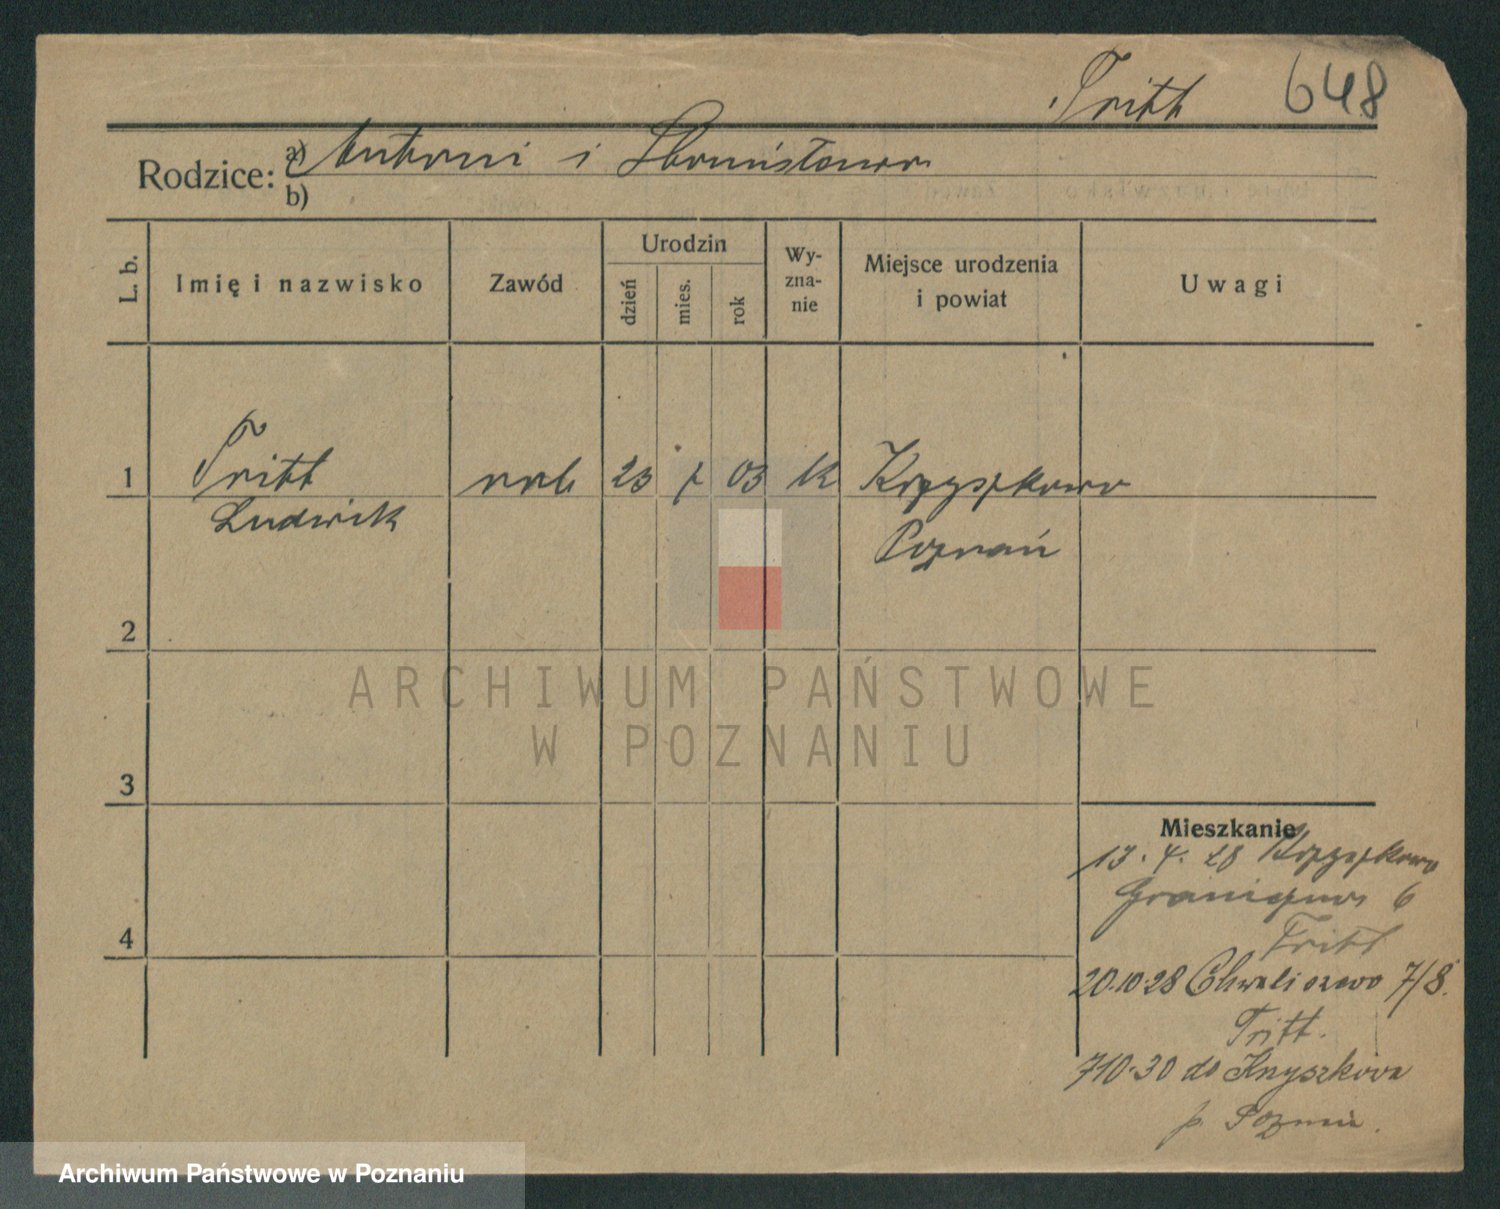 Tritt 648
Rodzice: a) Antoni i Bronisława
b)
L. b. Imię i nazwisko Zawód Urodzin dzień mies. rok Wy-zna-nie Miejsce urodzenia i powiat Uwagi
1 Tritt rob 23 7 03 K Krzyszkowo
Ludwik Poznań
2
ARCHIWUM PAŃSTWOWE
W POZNANIU
3
Mieszkanie
13. 4. 28 Krzyszkowo
Graniczna 6
4 Tritt
20.10.28 Chwaliszewo 7/8.
Tritt.
7 10.30 do Krzyszkowa
p. Poznań.
Archiwum Państwowe w Poznaniu